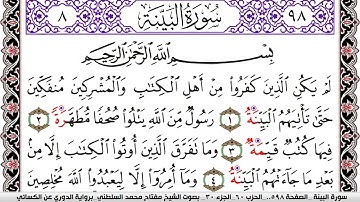 ٩٨ سُورَةُ البَيِّنَةِ ٨
بِسْمِ اللَّهِ الرَّحْمَنِ الرَّحِيمِ
لَمْ يَكُنِ الَّذِينَ كَفَرُوا مِنْ أَهْلِ الْكِتَابِ وَالْمُشْرِكِينَ مُنفَكِّينَ
حَتَّى تَأْتِيَهُمُ الْبَيِّنَةُ ١ رَسُولٌ مِنَ اللَّهِ يَتْلُوا صُحُفًا مُطَهَّرَةً ٢
فِيهَا كُتُبٌ قَيِّمَةٌ ٣ وَمَا تَفَرَّقَ الَّذِينَ أُوتُوا الْكِتَابَ إِلَّا مِن
بَعْدِ مَا جَاءَتْهُمُ الْبَيِّنَةُ ٤ وَمَا أُمِرُوا إِلَّا لِيَعْبُدُوا اللَّهَ مُخْلِصِينَ
سورة البينة . الصفحة ٥٩٨ . الحزب ٦٠ . الجزء ٣٠ . بصوت الشيخ مفتاح محمد السلطني . برواية الدوري عن الكسائي